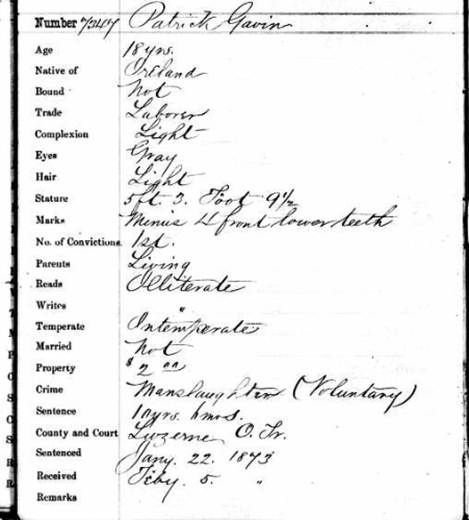 Number 7347 Patrick Gavin
Age 18 yrs.
Native of Ireland
Bound Not
Trade Laborer
Complexion Light
Eyes Gray
Hair Light
Stature 5 ft. 3. Foot 9 1/2
Marks Minus 4 front lower teeth
No. of Convictions. 1st.
Parents Living
Reads Illiterate
Writes "
Temperate Intemperate
Married Not
Property $2 00
Crime Manslaughter (Voluntary)
Sentence yrs. 6 mos.
County and Court Luzerne, O. Tr.
Sentenced Jany. 22. 1873
Received Feby. 5. "
Remarks